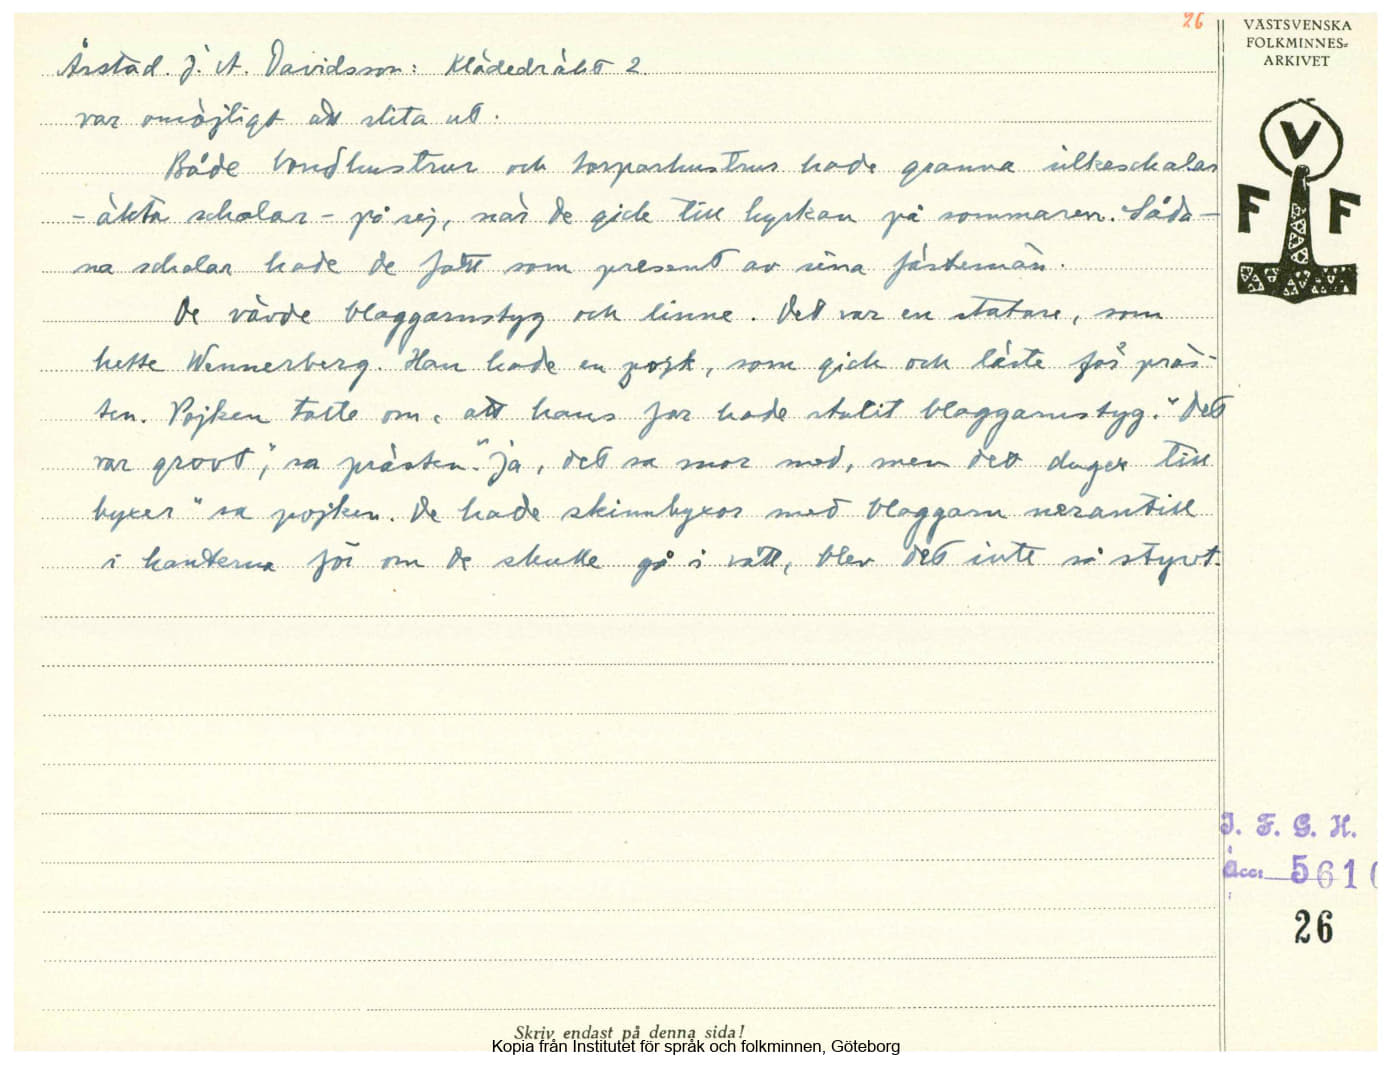 26
VÄSTSVENSKA
FOLKMINNES=
ARKIVET
Årstad. J. A. Davidsson: Klädedräkt 2.
var omöjligt att slita ut.
Både bondhustrur och torparhustrur hade granna silkeschalar
- äkta schalar - på sej, när de gick till kyrkan på sommaren. Såda-
na schalar hade de fått som present av sina fästemän.
De vävde blaggarnstyg och linne. Det var en statare, som
hette Wennerberg. Han hade en pojk, som gick och läste för präs-
ten. Pojken talte om, att hans far hade stulit blaggarnstyg. "Det
var grovt", sa prästen. "Ja, det sa mor med, men det duger till
byxer" sa pojken. De hade skinnbyxor med blaggarn nerantill
i kanterna för om de skulle gå i vått, blev det inte så styvt.
V
F F
I. F. G. H.
Acc: 561
26
Skriv endast på denna sida!
Kopia från Institutet för språk och folkminnen, Göteborg